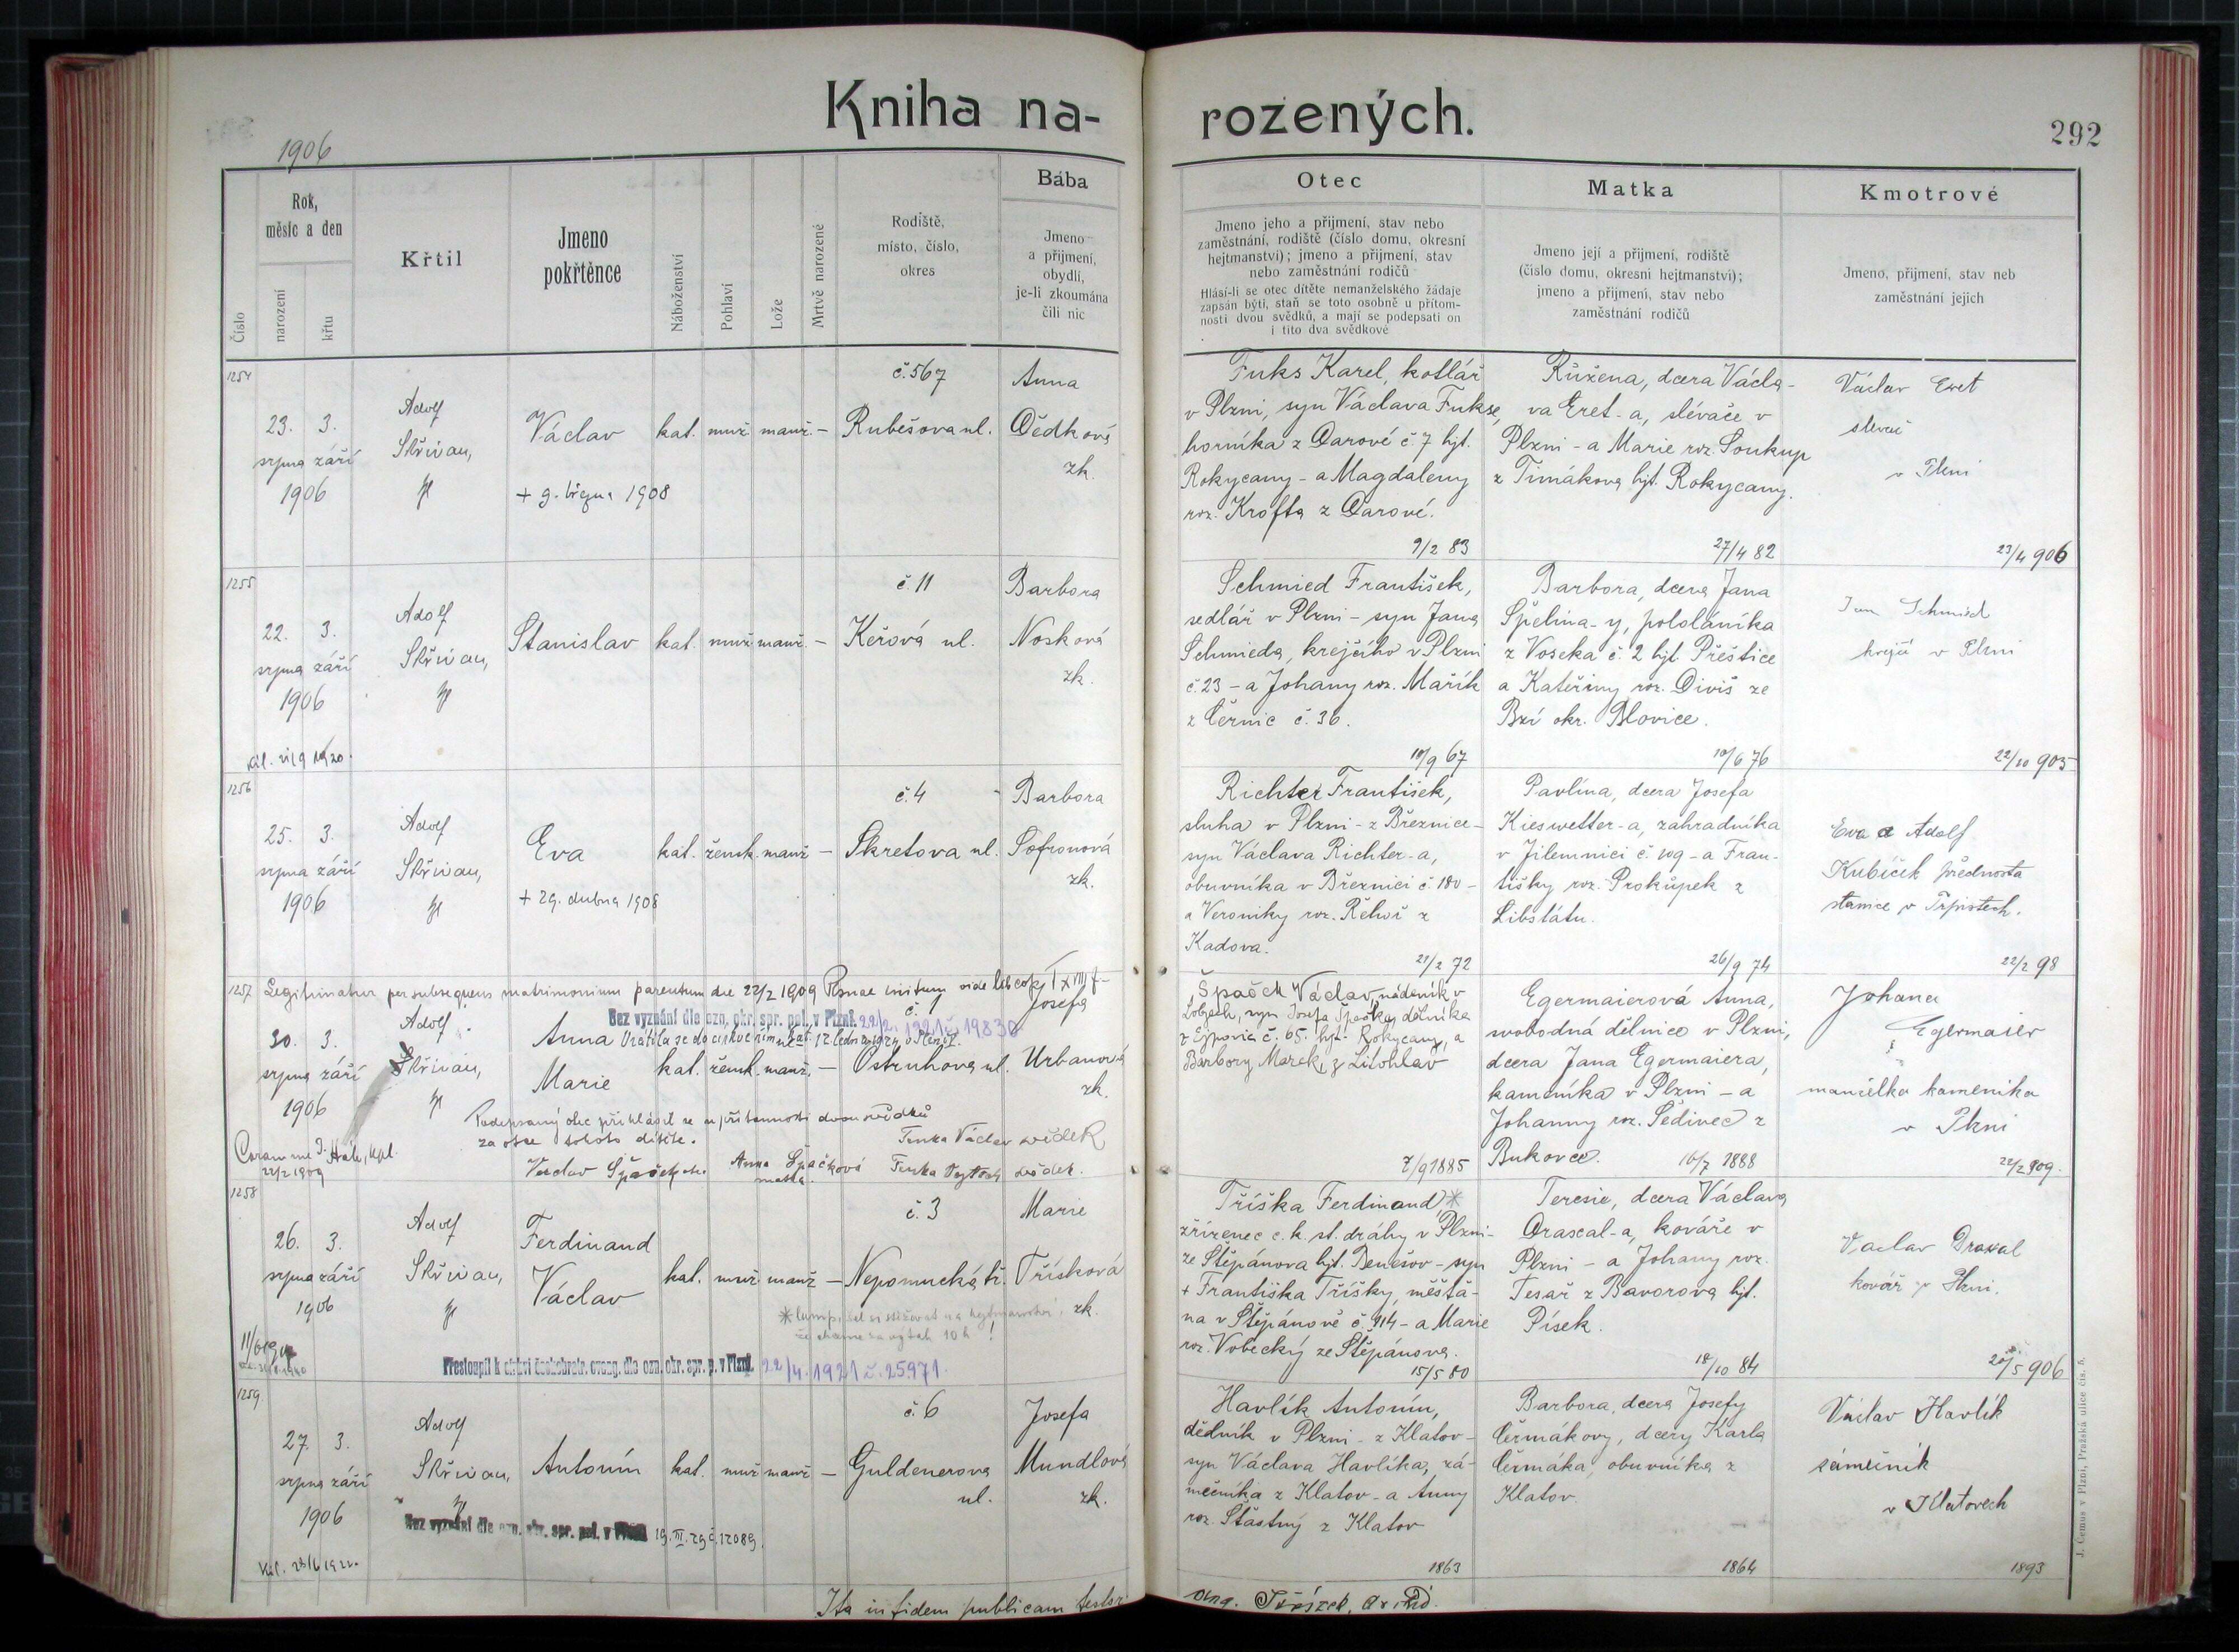 Kniha na-
rozených.
292
1906
Číslo
Rok,
měsíc a den
narození
křtu
Křtil
Jmeno
pokřtěnce
Náboženství
Pohlaví
Lože
Mrtvě narozené
Rodiště,
místo, číslo,
okres
Bába
Jmeno
a přijmení,
obydlí,
je-li zkoumána
čili nic
Otec
Jmeno jeho a přijmení, stav nebo
zaměstnání, rodiště (číslo domu, okresní
hejtmanství); jmeno a přijmení, stav
nebo zaměstnání rodičů
Hlásí-li se otec dítěte nemanželského žádaje
zapsán býti, staň se toto osobně u přítom-
nosti dvou svědků, a mají se podepsati on
i tito dva svědkové
Matka
Jmeno její a přijmení, rodiště
(číslo domu, okresní hejtmanství);
jmeno a přijmení, stav nebo
zaměstnání rodičů
Kmotrové
Jmeno, přijmení, stav neb
zaměstnání jejich
1254
23. 3.
srpna září
1906
Adolf
Skřivan,
Václav
+ 9. března 1908
kat. muž. manž. –
č. 567
Rubešova ul.
Anna
Dědková
zk.
Fuks Karel, kotlář
v Plzni, syn Václava Fukse,
horníka z Darové č 7 hjt.
Rokycany - a Magdaleny
roz. Krofta z Darové.
9/2 83
Růžena, dcera Václa-
va Eret-a, slévače v
Plzni - a Marie roz. Soukup
z Timákova hjt. Rokycany.
27/4 82
Václav Eret
slevač
v Plzni
23/4 906
1255
22. 3.
srpna září
1906
Adolf
Skřivan,
Stanislav
kat. muž. manž. –
č. 11
Keřová ul.
Barbora
Nosková
zk.
Schmied František,
sedlář v Plzni - syn Jana
Schmieda, krejčího v Plzni
č. 23 - a Johany roz. Mařík
z Černic č. 36.
10/9 67
Barbora, dcera Jana
Špelina-y, pololáníka
z Voseka č. 2 hjt. Přeštice
a Kateřiny roz. Diviš ze
Bzí okr. Blovice.
10/6 76
Jan Schmied
krejčí v Plzni
22/10 905
1256
25. 3.
srpna září
1906
Adolf
Skřivan,
Eva
+ 29. dubna 1908
kat. žensk. manž –
č. 4
Skretova ul.
Barbora
Sofronová
zk.
Richter František,
sluha v Plzni - z Březnice -
syn Václava Richter-a,
obuvníka v Březnici č. 180 -
a Veroniky roz. Řehoř z
Kadova.
21/2 72
Pavlína, dcera Josefa
Kieswetter-a, zahradníka
v Jilemnici č. 109 - a Fran-
tišky roz. Prokůpek z
Libštátu.
26/9 74
Eva a Adolf
Kubíček přednosta
stanice v Trpistech.
22/2 98
1257
Legitimatur per subsequens matrimonium parentum die 22/2 1909 Plsnae initum vide lib cop.
Bez vyznání dle ozn. okr. spr. pol. v Plzni. 22/2. 1921 č. 19830
30. 3.
srpna září
1906
Adolf
Skřivan,
Anna
Vrátila se do církve
Marie
kat. žensk. manž. –
č. 1
Ostruhova ul.
Josefa
Urbanová
zk.
Podepsaný otec přihlásil se u přítomnosti dvou svědků
za otce tohoto dítěte.
Coram me
22/2 1909
Václav Špaček otec
Anna Špačková
matka.
Funka Václav svědek
Funka Vojtěch svědek.
Špaček Václav, nádeník v
Lobzích, syn Josefa Špačka, dělníka
z Ejpovic č. 65. hjt. Rokycany, a
Barbory Marek, z Litohlav
7/9 1885
Egermaierová Anna,
svobodná dělnice v Plzni,
dcera Jana Egermaiera,
kameníka v Plzni - a
Johanny roz. Šedivec z
Bukovce.
16/7 1888
Johana
Egermaier
manželka kameníka
v Plzni
22/2 909.
1258
26. 3.
srpna září
1906
Adolf
Skřivan,
Ferdinand
Václav
kat. muž manž –
č. 3
Nepomucká tř.
Marie
Třísková
zk.
Přestoupil k církvi českobratr. evang. dle ozn. okr. spr. p. v Plzni. 22/4. 1921 č. 25971.
Tříška Ferdinand, *
zřízenec c. k. st. dráhy v Plzni -
ze Štěpánova hjt. Benešov - syn
+ Františka Tříšky, měšťa-
na v Štěpánově č. 114 - a Marie
roz. Vobecký ze Štěpánova.
15/5 80
Teresie, dcera Václava
Drascal-a, kováře v
Plzni - a Johany roz.
Tesař z Bavorova hjt.
Písek.
18/10 84
Vaclav Draxal
kovář v Plzni.
20/5 906
1259.
27. 3.
srpna září
1906
Adolf
Skřivan,
Antonín
kat. muž manž –
č. 6
Guldenerova
ul.
Josefa
Mundlová
zk.
Bez vyznání dle ozn. okr. spr. pol. v Plzni 19. III. 29 č. 12089.
Havlík Antonín,
dělník v Plzni - z Klatov -
syn Václava Havlíka, zá-
mečníka z Klatov - a Anny
roz. Šťastný z Klatov
1863
Barbora, dcera Josefy
Čermákovy, dcery Karla
Čermáka, obuvníka z
Klatov.
1864
Václav Havlík
zámečník
v Klatovech
1893
Ita in fidem publicam testor
J. Čemus v Plzni, Pražská ulice čís. 5.